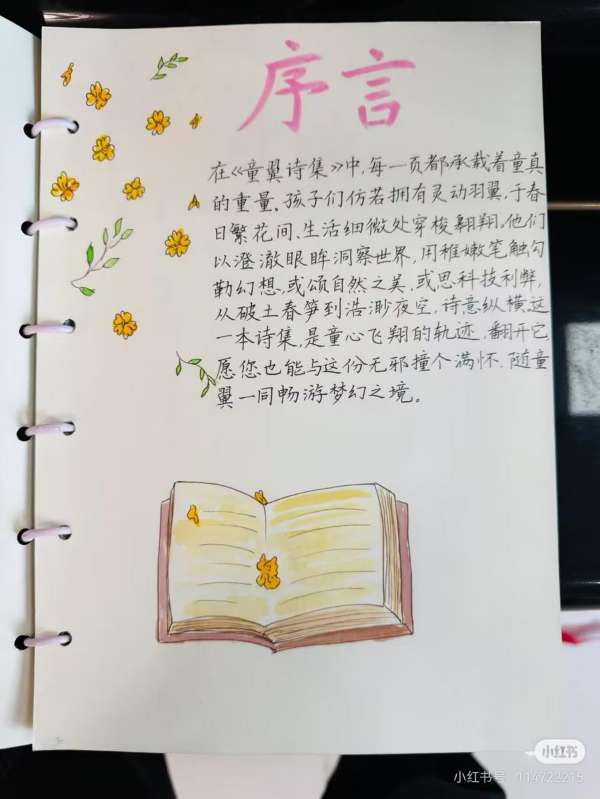 序言
在《童翼诗集》中,每一页都承载着童真
的重量。孩子们仿若拥有灵动羽翼,于春
日繁花间、生活细微处穿梭翱翔。他们
以澄澈眼眸洞察世界,用稚嫩笔触勾
勒幻想,或颂自然之美,或思科技利弊,
从破土春笋到浩渺夜空,诗意纵横。这
一本诗集,是童心飞翔的轨迹,翻开它,
愿您也能与这份无邪撞个满怀,随童
翼一同畅游梦幻之境。
小红书
小红书号:114722215